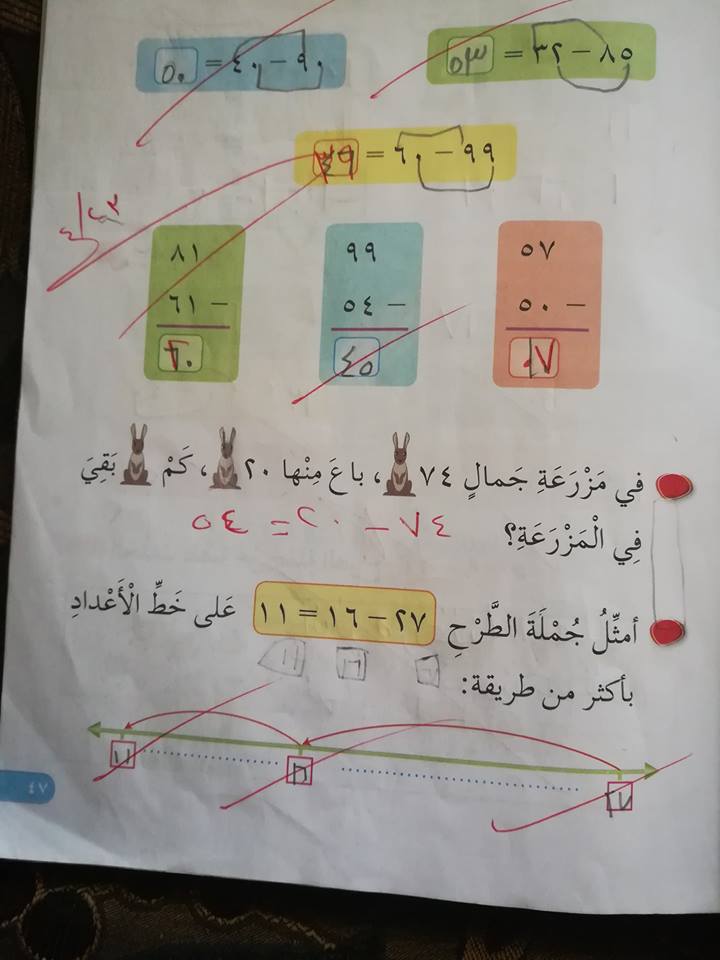 ٨٥ − ٣٢ = ٥٣
٩٠ − ٤٠ = ٥٠
٩٩ − ٦٠ = ٣٩
٥٧
− ٥٠
٠٧
٩٩
− ٥٤
٤٥
٨١
− ٦١
٢٠
في مَزْرَعَةِ جَمالٍ ٧٤ ، باعَ مِنْها ٢٠ ، كَمْ بَقِيَ
فِي الْمَزْرَعَةِ؟ ٧٤ − ٢٠ = ٥٤
أمثِّلُ جُمْلَةَ الطَّرْحِ ٢٧ − ١٦ = ١١ عَلى خَطِّ الْأَعْدادِ
بأكثر من طريقة:
١١ ١٦ ٢٧
٤٧